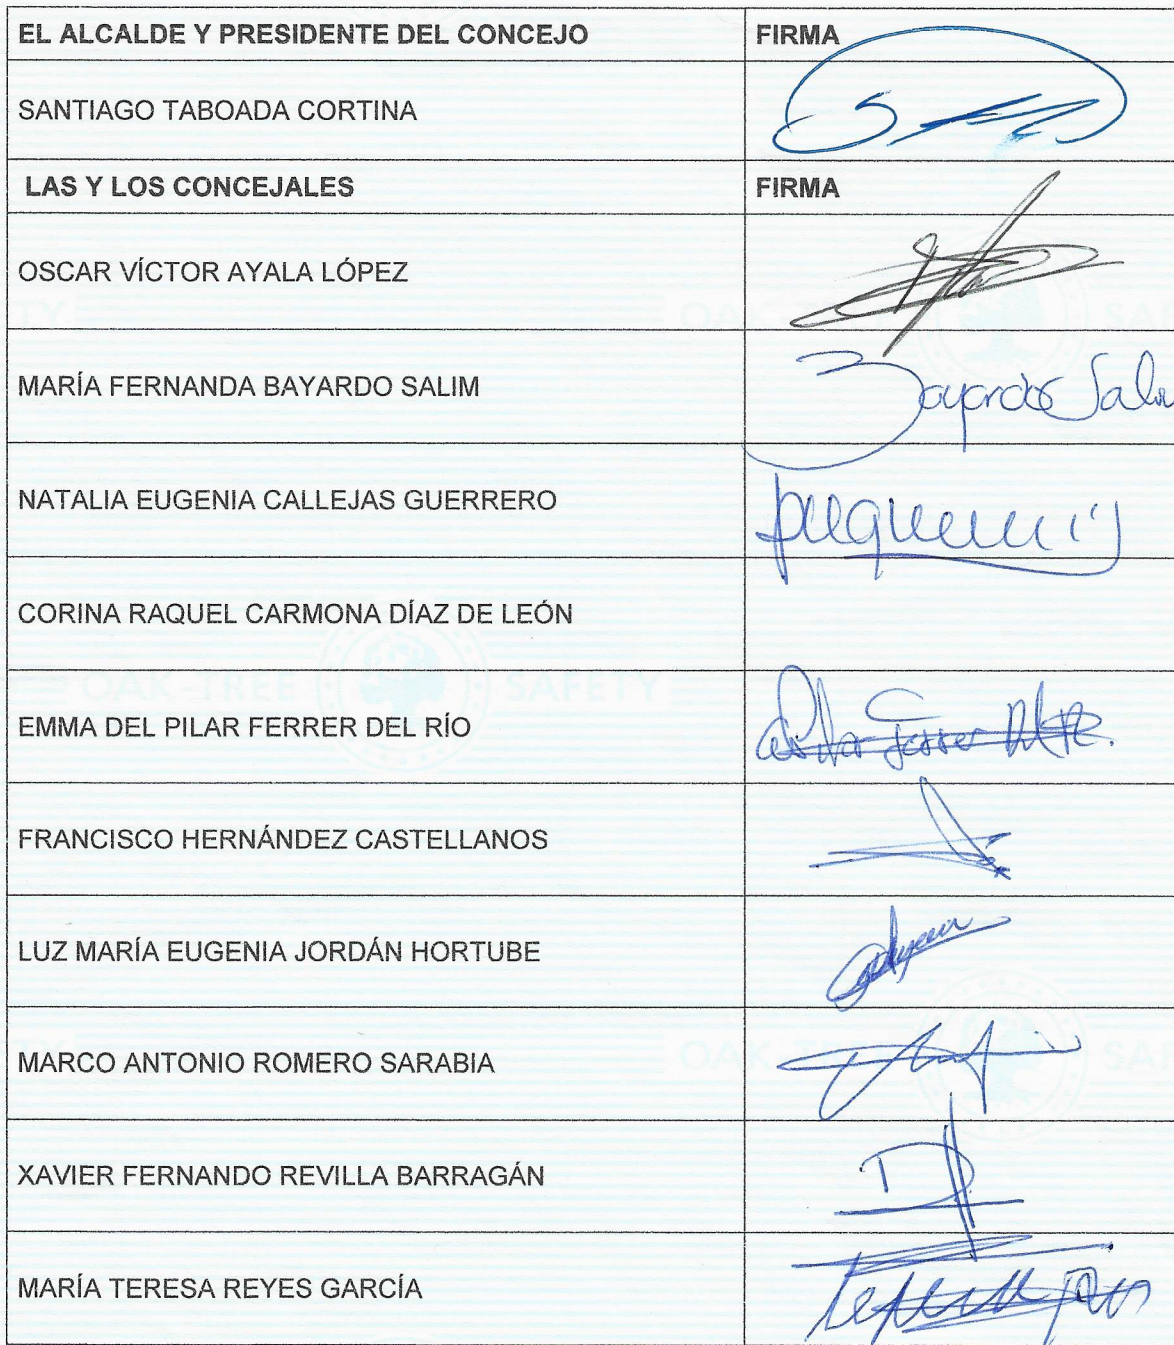 EL ALCALDE Y PRESIDENTE DEL CONCEJO FIRMA
SANTIAGO TABOADA CORTINA
LAS Y LOS CONCEJALES FIRMA
OSCAR VÍCTOR AYALA LÓPEZ
TY OAK-TREE SAF
MARÍA FERNANDA BAYARDO SALIM Bayardo
NATALIA EUGENIA CALLEJAS GUERRERO
CORINA RAQUEL CARMONA DÍAZ DE LEÓN
OAK-TREE SAFETY
EMMA DEL PILAR FERRER DEL RÍO Ferrer
FRANCISCO HERNÁNDEZ CASTELLANOS
LUZ MARÍA EUGENIA JORDÁN HORTUBE
MARCO ANTONIO ROMERO SARABIA
TY OAK-TREE SAF
XAVIER FERNANDO REVILLA BARRAGÁN
MARÍA TERESA REYES GARCÍA